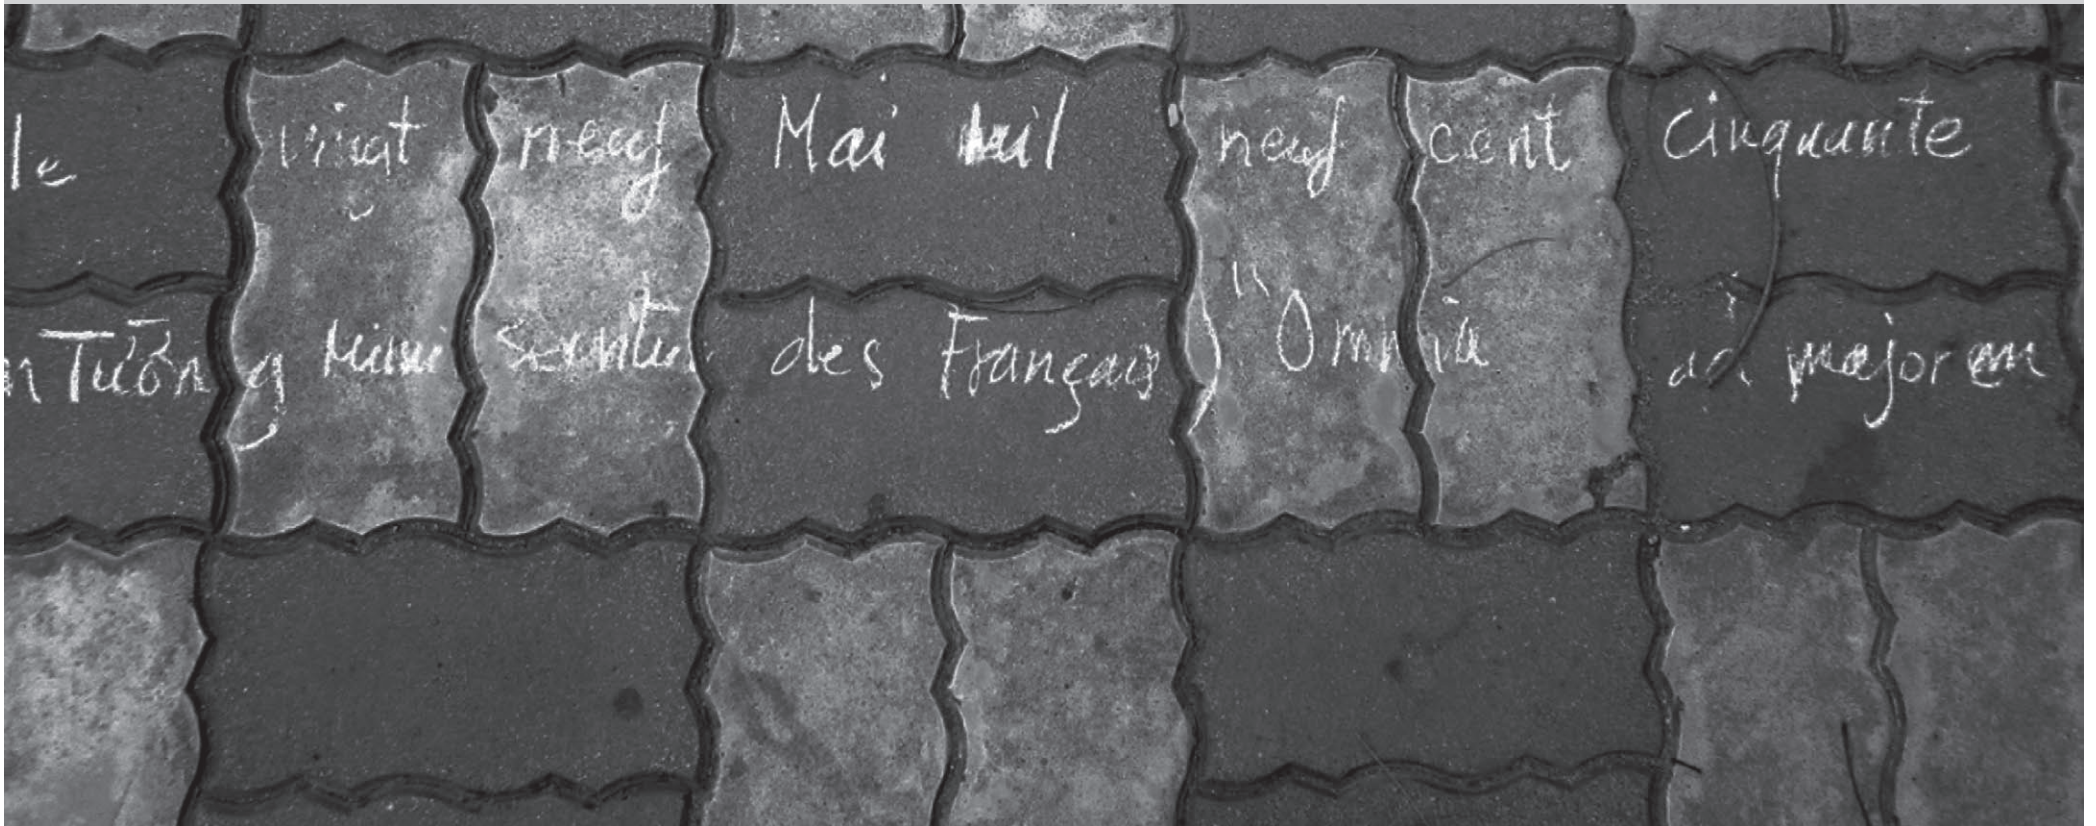 le vingt neuf Mai mil neuf cent cinquante
n Tường des Français) "Omnia ad majorem